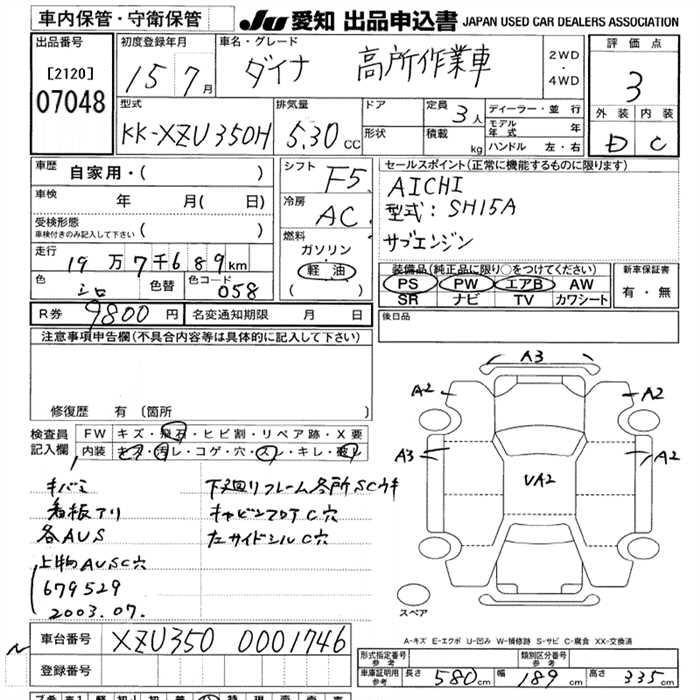 車内保管・守衛保管
JU 愛知 出品申込書 JAPAN USED CAR DEALERS ASSOCIATION
出品番号
[2120]
07048
初度登録年月
15 7月
車名・グレード
ダイナ 高所作業車
2WD
・
4WD
評価点
3
外装 内装
D C
型式
KK-XZU350H
排気量
5.30 CC
ドア
形状
定員 3人
積載 kg
ディーラー・並行
モデル年式 年
ハンドル 左・右
車歴 自家用・( )
車検 年 月( 日)
受検形態
車検付きのみ記入して下さい ( )
走行
19万7千689km
色 シロ 色替 色コード 058
シフト F5
冷房 AC
燃料
ガソリン
軽油
( )
セールスポイント(正常に機能するものに限ります)
AICHI
型式:SH15A
サブエンジン
装備品(純正品に限り○をつけてください)
PS PW エアB AW
SR ナビ TV カワシート
新車保証書
有・無
R券 9800円 名変通知期限 月 日
後日品
注意事項申告欄(不具合内容等は具体的に記入して下さい)
修復歴 有 (箇所 )
検査員
記入欄
FW キズ・飛石・ヒビ割・リペア跡・X要
内装 キズ・汚レ・コゲ・穴・スレ・キレ・破レ
キバミ
看板アリ
各AUS
上物AUSC穴
679529
2003.07.
下廻りフレーム各所SCサキ
キャビンフロアC穴
左サイドシルC穴
A3
A2
A2
A3
A2
UA2
スペア
A-キズ E-エクボ U-凹み W-補修跡 S-サビ C-腐食 XX-交換済
車台番号 XZU350 0001746
登録番号
形式指定番号
参考
類別区分番号
参考
車庫証明用
参考
長さ 580cm 幅 189cm 高さ 335cm